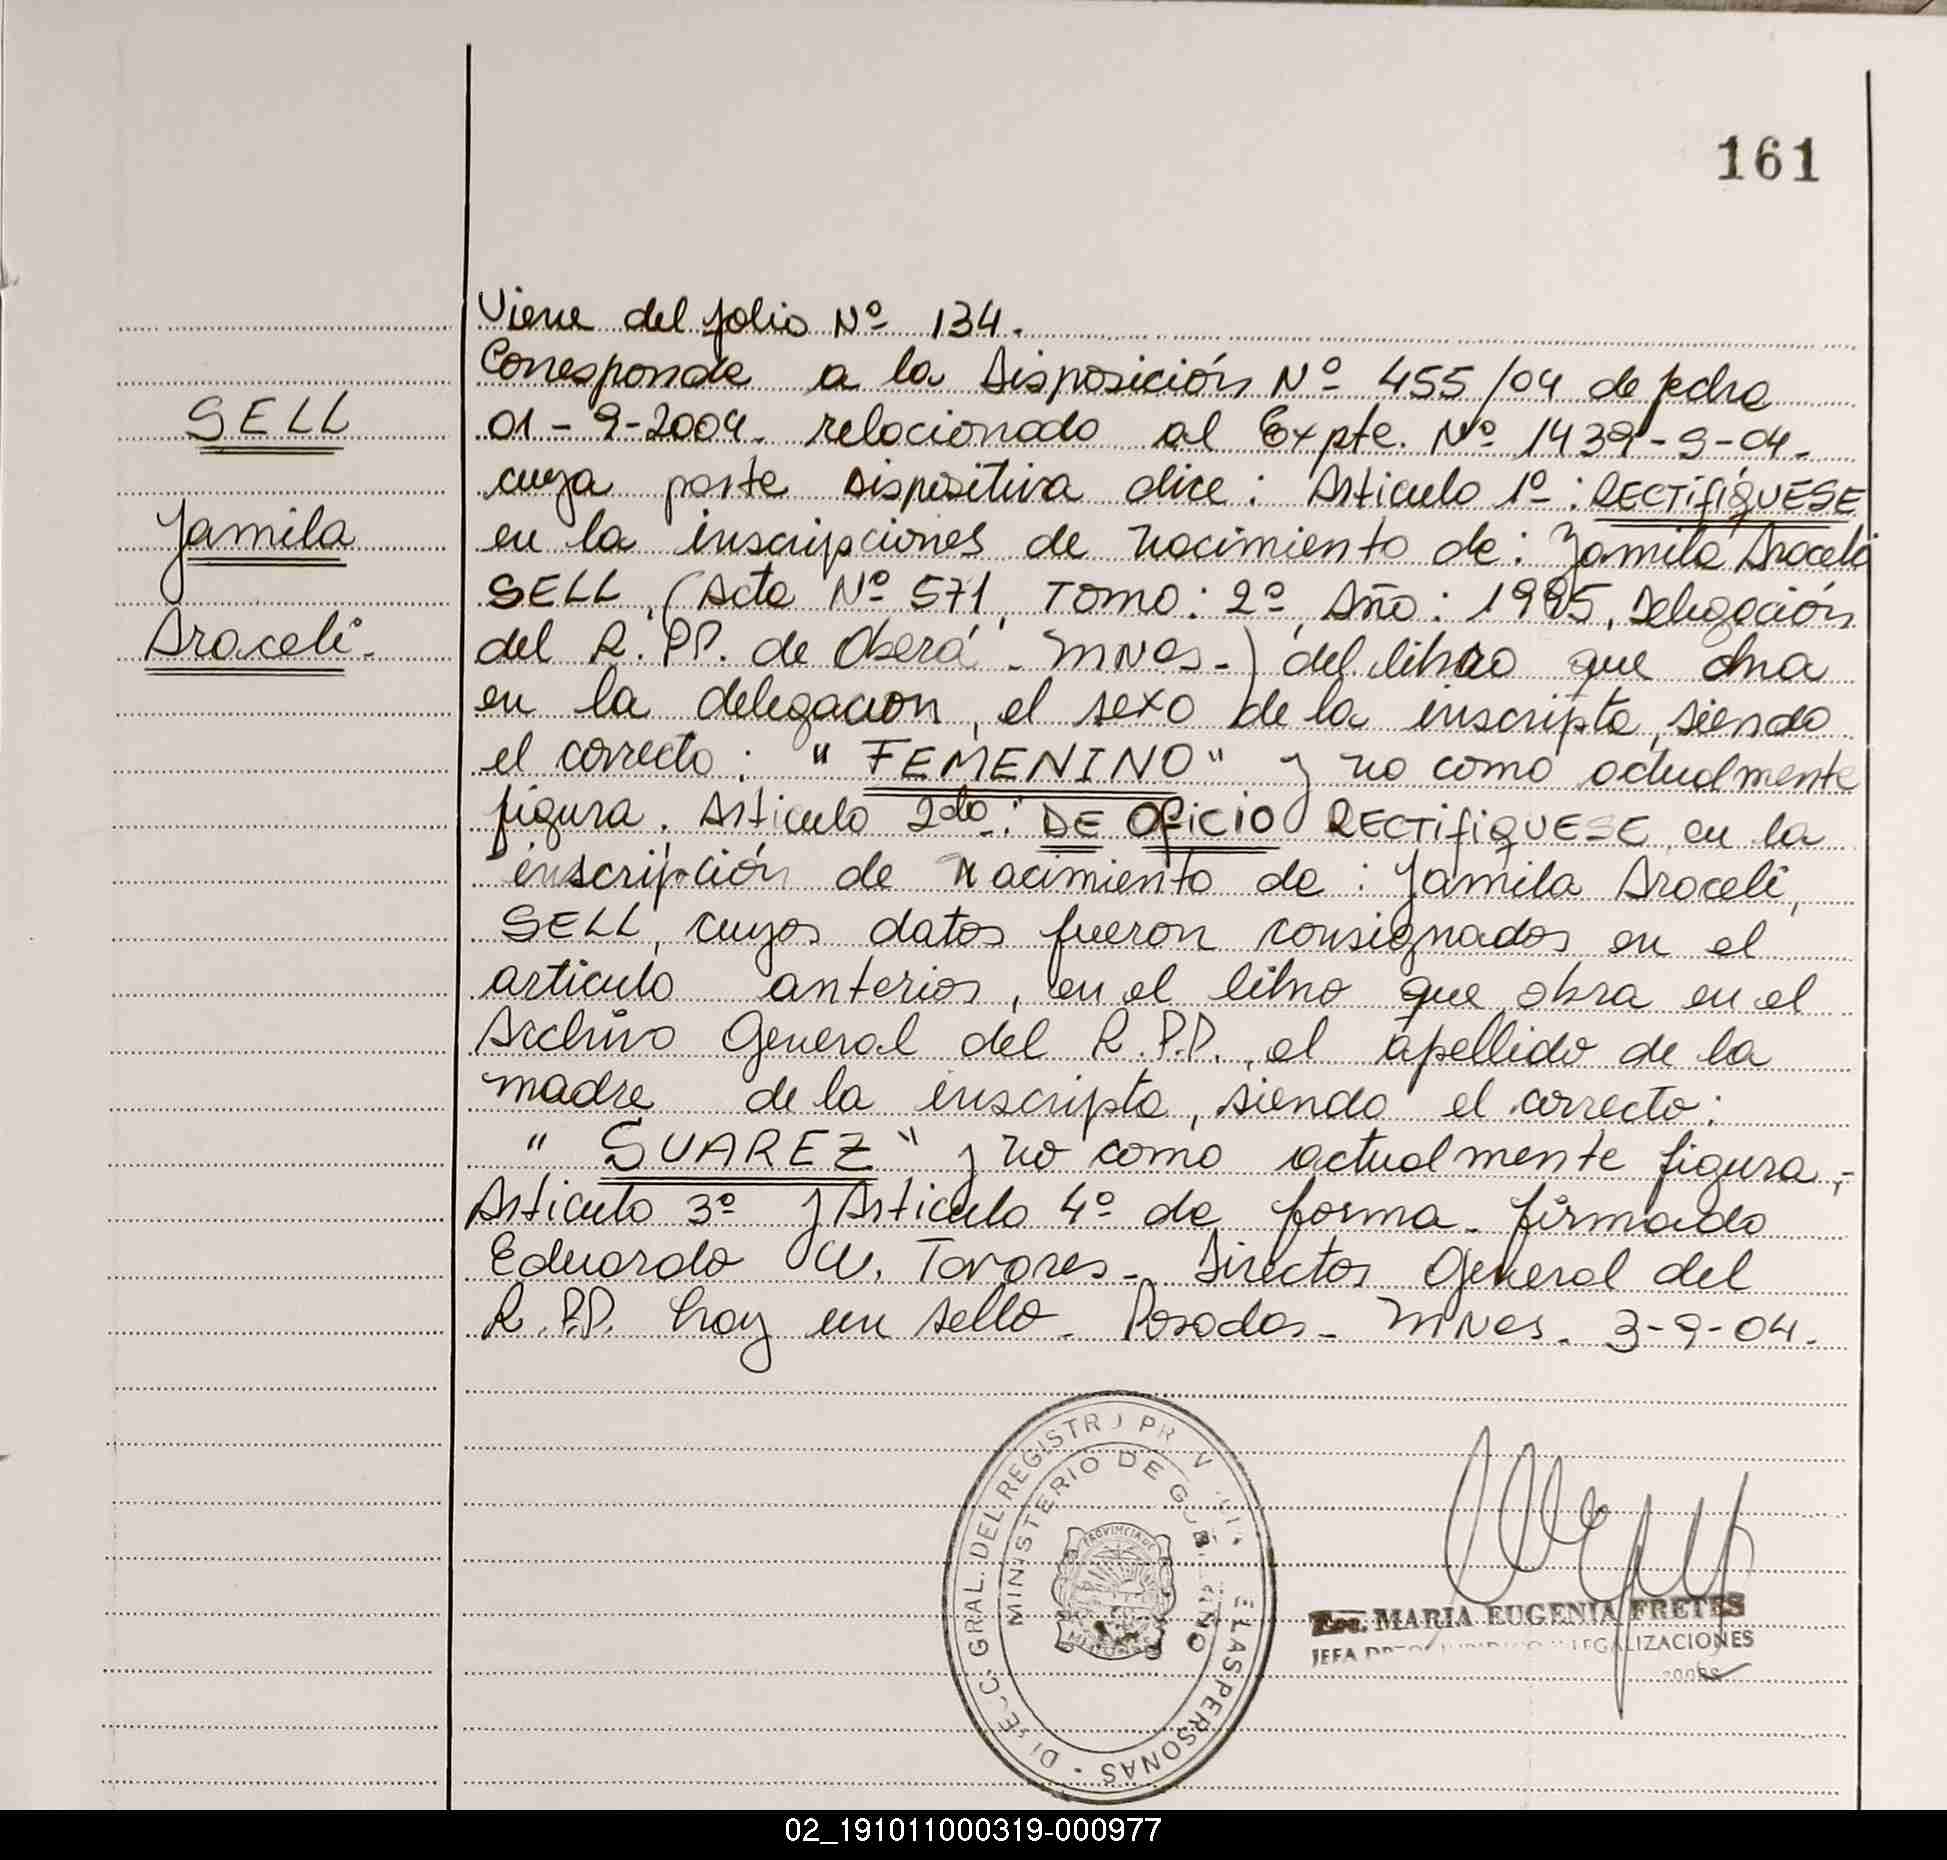 161
Viene del folio Nº 134.
Corresponde a la Disposición Nº 455/04 de fecha
01-9-2004. relacionado al Expte. Nº 1439-S-04.
cuya parte dispositiva dice: Articulo 1º: RECTIFIQUESE
en la inscripciones de nacimiento de: Jamila Araceli
SELL, (Acta Nº 571, Tomo: 2º, Año: 1995, Delegación
del R.PP. de Oberá - Mnes-) del libro que obra
en la delegacion, el sexo de la inscripta, siendo
el correcto: "FEMENINO" y no como actualmente
figura. Articulo 2do.: DE OFICIO RECTIFIQUESE en la
inscripción de nacimiento de: Jamila Araceli,
SELL, cuyos datos fueron consignados en el
articulo anterior, en el libro que obra en el
Archivo General del R.P.P., el apellido de la
madre de la inscripta, siendo el correcto:
"SUAREZ" y no como actualmente figura,-
Articulo 3º y Articulo 4º de forma. firmado
Eduardo Tavares. Director General del
R.P.P. hay un sello. Posadas - Mnes. 3-9-04.
SELL
Jamila
Araceli.
MINISTERIO DE GOBIERNO
PROVINCIA DE
MISIONES
MARIA EUGENIA FRETES
JEFA LEGALIZACIONES
02_191011000319-000977